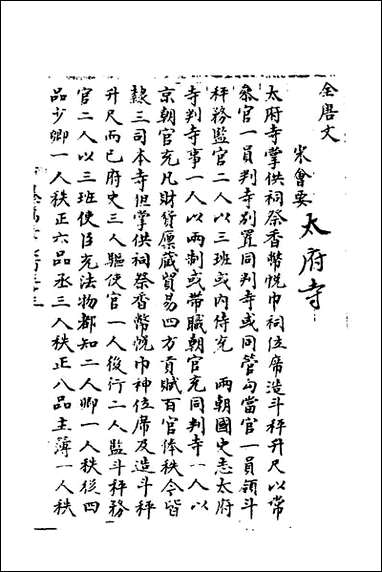 全唐文
宋會要
太府寺
太府寺掌供祠祭香幣帨巾祠位席造斗秤升尺以常
叅官一員判寺别置同判寺或同管勾當官一員領斗
秤務監官二人以三班或内侍充 兩朝國史志太府
寺判寺事一人以兩制或帶職朝官充同判寺一人以
京朝官充凡財貨廪蔵貿易四方貢賦百官俸秩今皆
隸三司本寺但掌供祠祭香幣帨巾神位席及造斗秤
升尺而已府史三人驅使官一人後行二人監斗秤務
官二人以三班使臣充法物都知二人卿一人秩從四
品少卿一人秩正六品丞三人秩正八品主簿一人秩